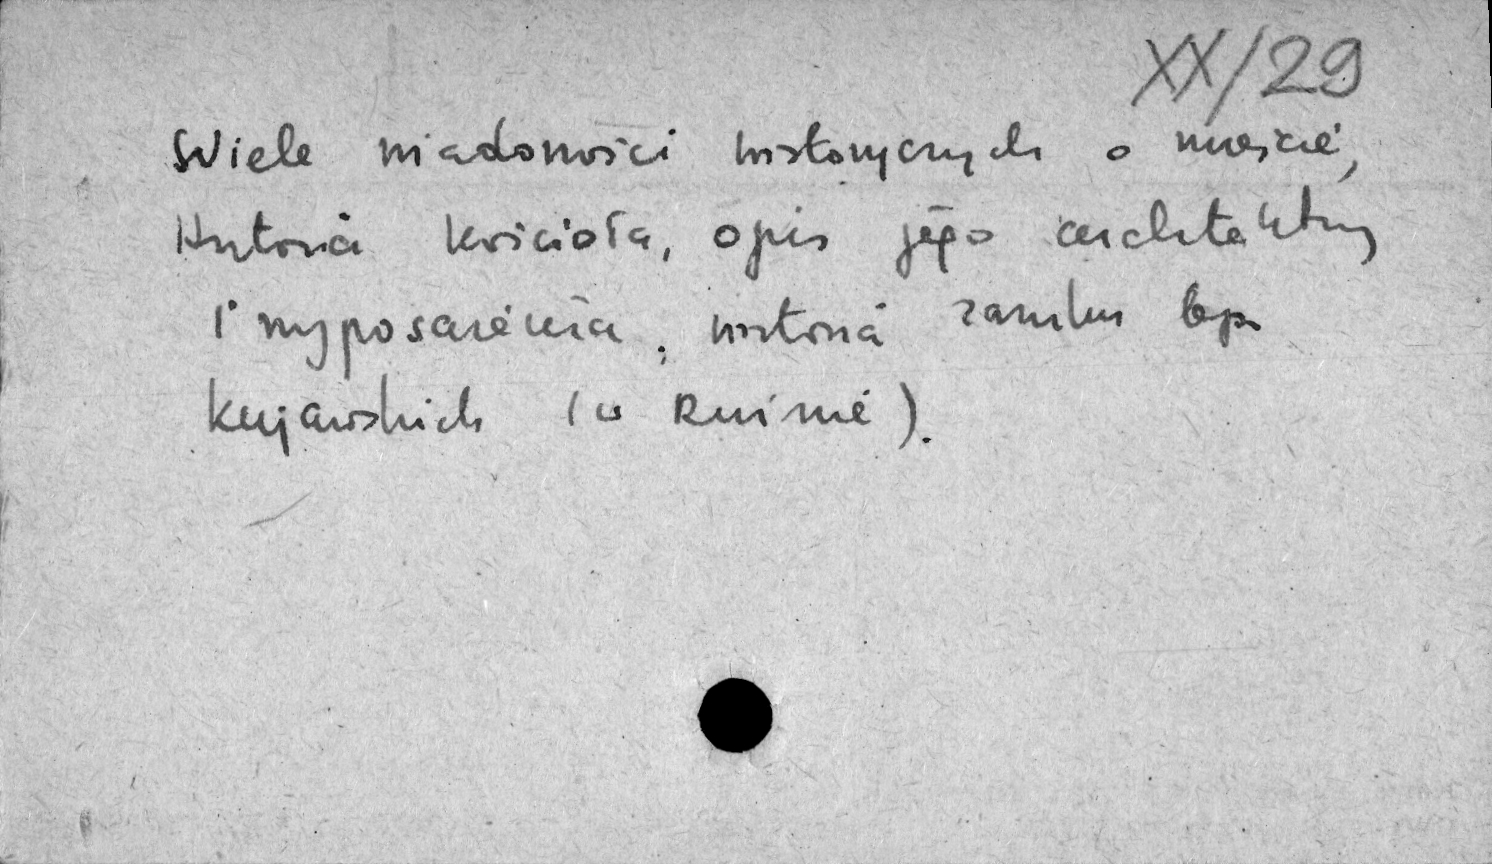 XX/29
Wiele wiadomości historycznych o mieście,
Historia kościoła, opis jego architektury
i wyposażenia, historia zamku bpa
kujawskich (w ruinie).